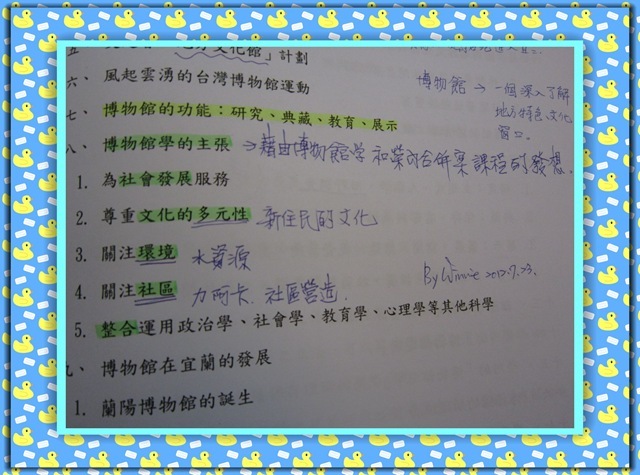 地方文化館」計劃
六、風起雲湧的台灣博物館運動
博物館 → 一個深入了解
地方特色、文化
窗口.
七、博物館的功能：研究、典藏、教育、展示
八、博物館學的主張 → 藉由博物館學和
課程的發想.
1. 為社會發展服務
2. 尊重文化的多元性 新住民的文化
3. 關注環境 水資源
4. 關注社區 力阿卡. 社區營造.
By Winnie 2012.7.23.
5. 整合運用政治學、社會學、教育學、心理學等其他科學
九、博物館在宜蘭的發展
1. 蘭陽博物館的誕生